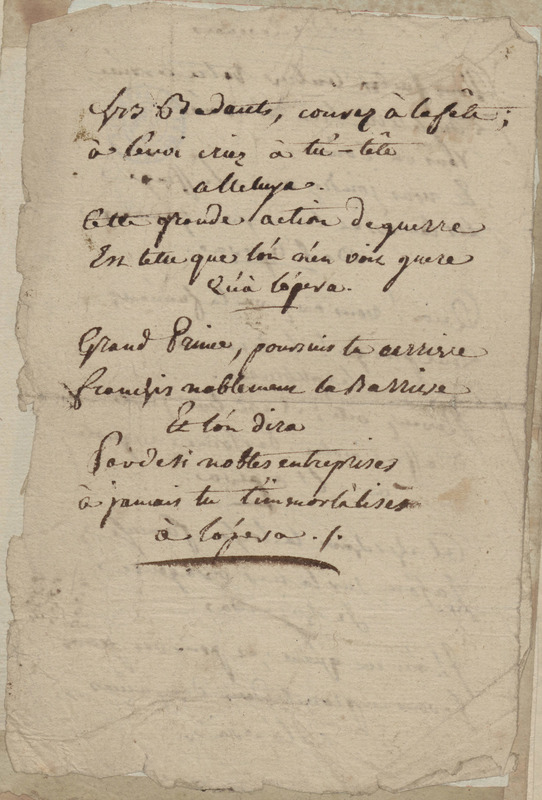 Badauts, courez à la fête ;
à l'envi criez à tu-tête
alleluya.
Cette grande action de guerre
Est telle que l'ón n'en voit guere
Qu'à l'ópera.
Grand Prince, poursuis ta carriere
franchis noblement la Barriere
Et l'ón dira
Par de si nobles entreprises
à jamais tu t'immortalises
à l'ópera ./.